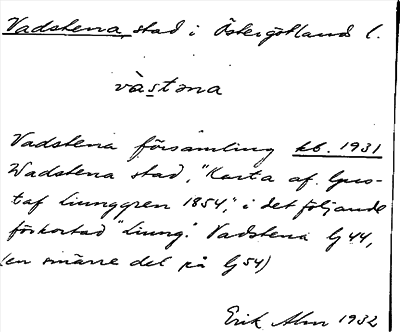 Vadstena, stad i Östergötlands l.
vàstəna
Vadstena församling kb. 1931
Wadstena stad, "Karta af Gus-
taf Ljunggren 1854," i det följande
förkortad "Ljung". Vadstena G 44,
(en smärre del på G 54)
Erik Alm 1932